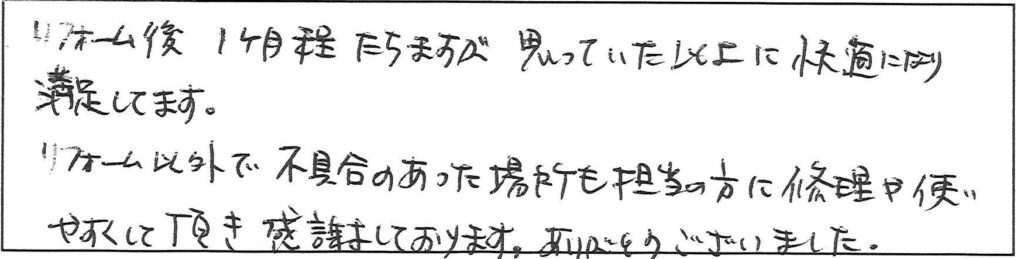 リフォーム後 1ヶ月程たちますが 思っていた以上に快適になり
満足してます。
リフォーム以外で不具合のあった場所も担当の方に修理や使い
やすくして頂き感謝しております。ありがとうございました。